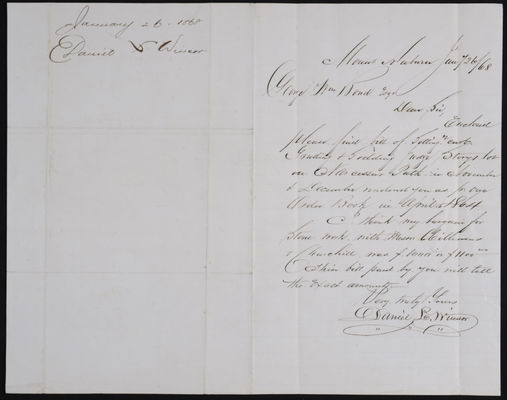 January 26. 1868
Daniel L Winsor
Mount Auburn Jany 26/68
Geog Wm Bond Esqr
Dear Sir,
Enclosed
please find bill of
Grading & Sodding Judge Storys lot
on Narcissus Path in November
& December rendered you as pr our
Order Book in April 1864
I think my bargain for
Stone work with Messrs Williams
& Churchill was
Their bill paid by you will tell
the exact amount
Very truly Yours
Daniel L. Winsor